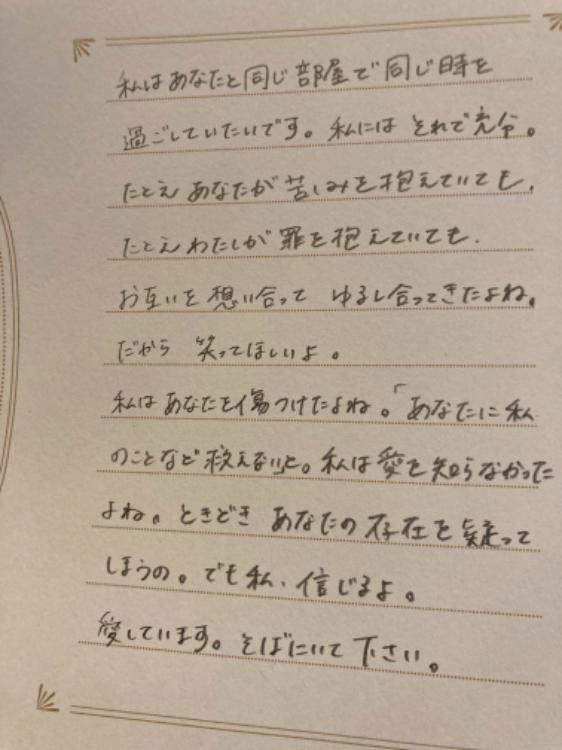 私はあなたと同じ部屋で同じ時を
過ごしていたいです。私にはそれで充分。
たとえあなたが苦しみを抱えていても、
たとえわたしが罪を抱えていても、
お互いを想い合って ゆるし合ってきたよね。
だから 笑ってほしいよ。
私はあなたを傷つけたよね。「あなたに私
のことなど救えない」と。私は愛を知らなかった
よね。ときどき あなたの存在を疑って
しまうの。でも私、信じるよ。
愛しています。そばにいて下さい。